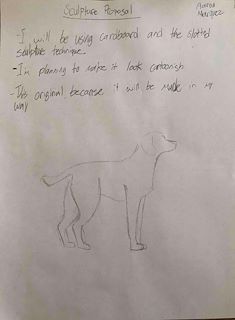 Sculpture Proposal
-I will be using cardboard and the slotted
sculpture technique.
-I'm planning to make it look cartoonish
-It's original because it will be made in my
way